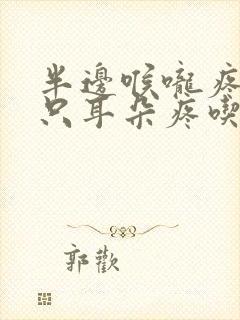 半邊喉嚨疼
只耳朵疼喫
郭歡